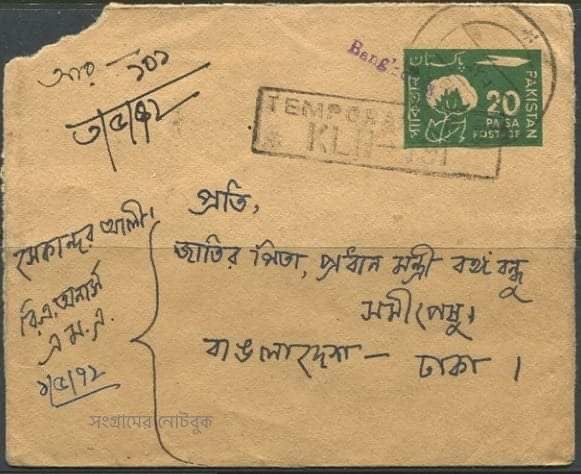 আর - ১০১
৩/৫/৭২
Bangla
TEMPORA
KLN-151
পাকিস্তান
PAKISTAN
20
PAISA
POSTAGE
প্রতি,
জাতির পিতা, প্রধান মন্ত্রী বঙ্গবন্ধু
সমীপেষু।
বাঙলাদেশ — ঢাকা ।
সেকান্দর আলী।
বি.এ. অনার্স
এম.এ.
১/৫/৭২
সংগ্রামের নোটবুক